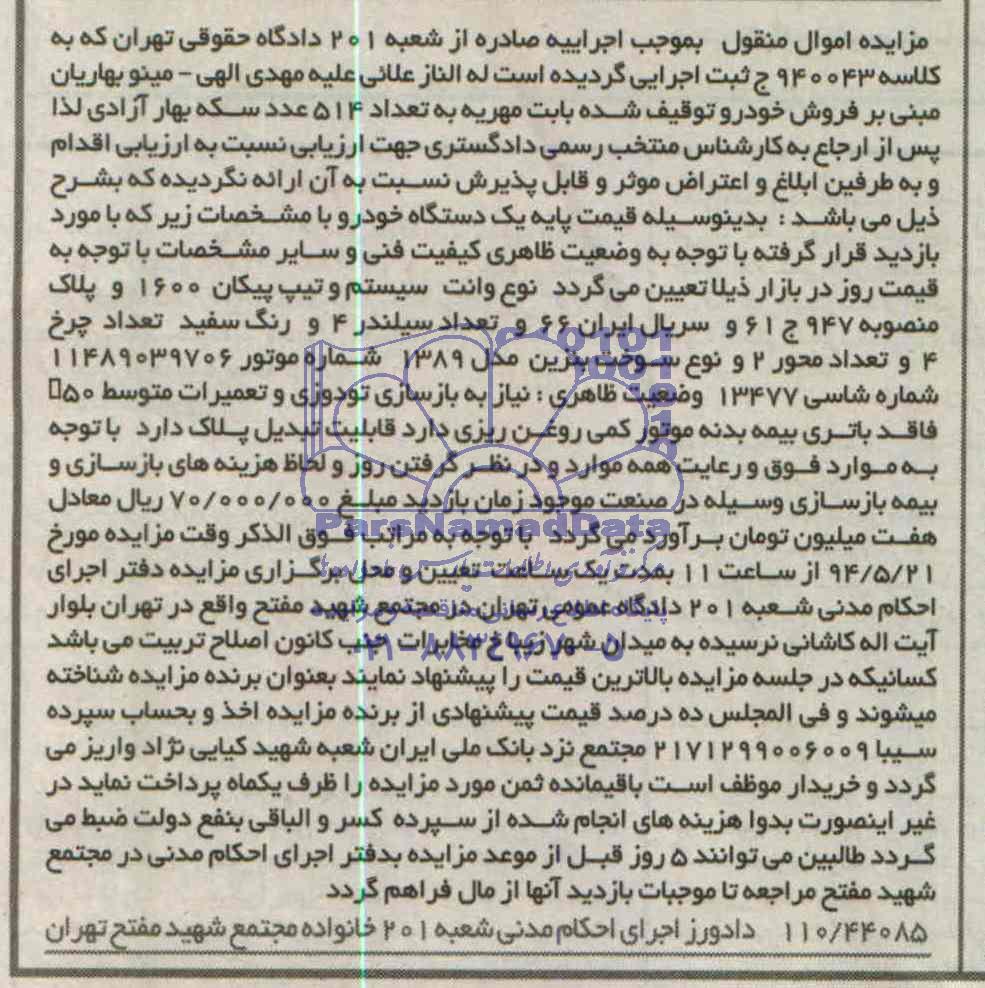 مزایده اموال منقول بموجب اجراییه صادره از شعبه ۲۰۱ دادگاه حقوقی تهران که به
کلاسه ۹۴۰۰۴۳ ج ثبت اجرایی گردیده است له الناز علائی علیه مهدی الهی - مینو بهاریان
مبنی بر فروش خودرو توقیف شده بابت مهریه به تعداد ۵۱۴ عدد سکه بهار آزادی لذا
پس از ارجاع به کارشناس منتخب رسمی دادگستری جهت ارزیابی نسبت به ارزیابی اقدام
و به طرفین ابلاغ و اعتراض موثر و قابل پذیرش نسبت به آن ارائه نگردیده که بشرح
ذیل می باشد : بدینوسیله قیمت پایه یک دستگاه خودرو با مشخصات زیر که با مورد
بازدید قرار گرفته با توجه به وضعیت ظاهری کیفیت فنی و سایر مشخصات با توجه به
قیمت روز در بازار ذیلا تعیین می گردد نوع وانت سیستم و تیپ پیکان ۱۶۰۰ و پلاک
منصوبه ۹۴۷ ج ۶۱ و سریال ایران ۶۶ و تعداد سیلندر ۴ و رنگ سفید تعداد چرخ
۴ و تعداد محور ۲ و نوع سوخت بنزین مدل ۱۳۸۹ شماره موتور ۱۱۴۸۹۰۳۹۷۰۶
شماره شاسی ۱۳۴۷۷ وضعیت ظاهری : نیاز به بازسازی تودوزی و تعمیرات متوسط ۵۰
فاقد باتری بیمه بدنه موتور کمی روغن ریزی دارد قابلیت تبدیل پلاک دارد با توجه
به موارد فوق و رعایت همه موارد و در نظر گرفتن روز و لحاظ هزینه های بازسازی و
بیمه بازسازی وسیله در صنعت موجود زمان بازدید مبلغ ۷۰/۰۰۰/۰۰۰ ریال معادل
هفت میلیون تومان برآورد می گردد با توجه به مراتب فوق الذکر وقت مزایده مورخ
۹۴/۵/۲۱ از ساعت ۱۱ بمدت یک ساعت تعیین و محل برگزاری مزایده دفتر اجرای
احکام مدنی شعبه ۲۰۱ دادگاه عمومی تهران در مجتمع شهید مفتح واقع در تهران بلوار
آیت اله کاشانی نرسیده به میدان شهر زیبا خ مخابرات جنب کانون اصلاح تربیت می باشد
کسانیکه در جلسه مزایده بالاترین قیمت را پیشنهاد نمایند بعنوان برنده مزایده شناخته
میشوند و فی المجلس ده درصد قیمت پیشنهادی از برنده مزایده اخذ و بحساب سپرده
سیبا ۲۱۷۱۲۹۹۰۰۶۰۰۹ مجتمع نزد بانک ملی ایران شعبه شهید کیایی نژاد واریز می
گردد و خریدار موظف است باقیمانده ثمن مورد مزایده را ظرف یکماه پرداخت نماید در
غیر اینصورت بدوا هزینه های انجام شده از سپرده کسر و الباقی بنفع دولت ضبط می
گردد طالبین می توانند ۵ روز قبل از موعد مزایده بدفتر اجرای احکام مدنی در مجتمع
شهید مفتح مراجعه تا موجبات بازدید آنها از مال فراهم گردد
۱۱۰/۴۴۰۸۵ دادورز اجرای احکام مدنی شعبه ۲۰۱ خانواده مجتمع شهید مفتح تهران
ParsNamadData